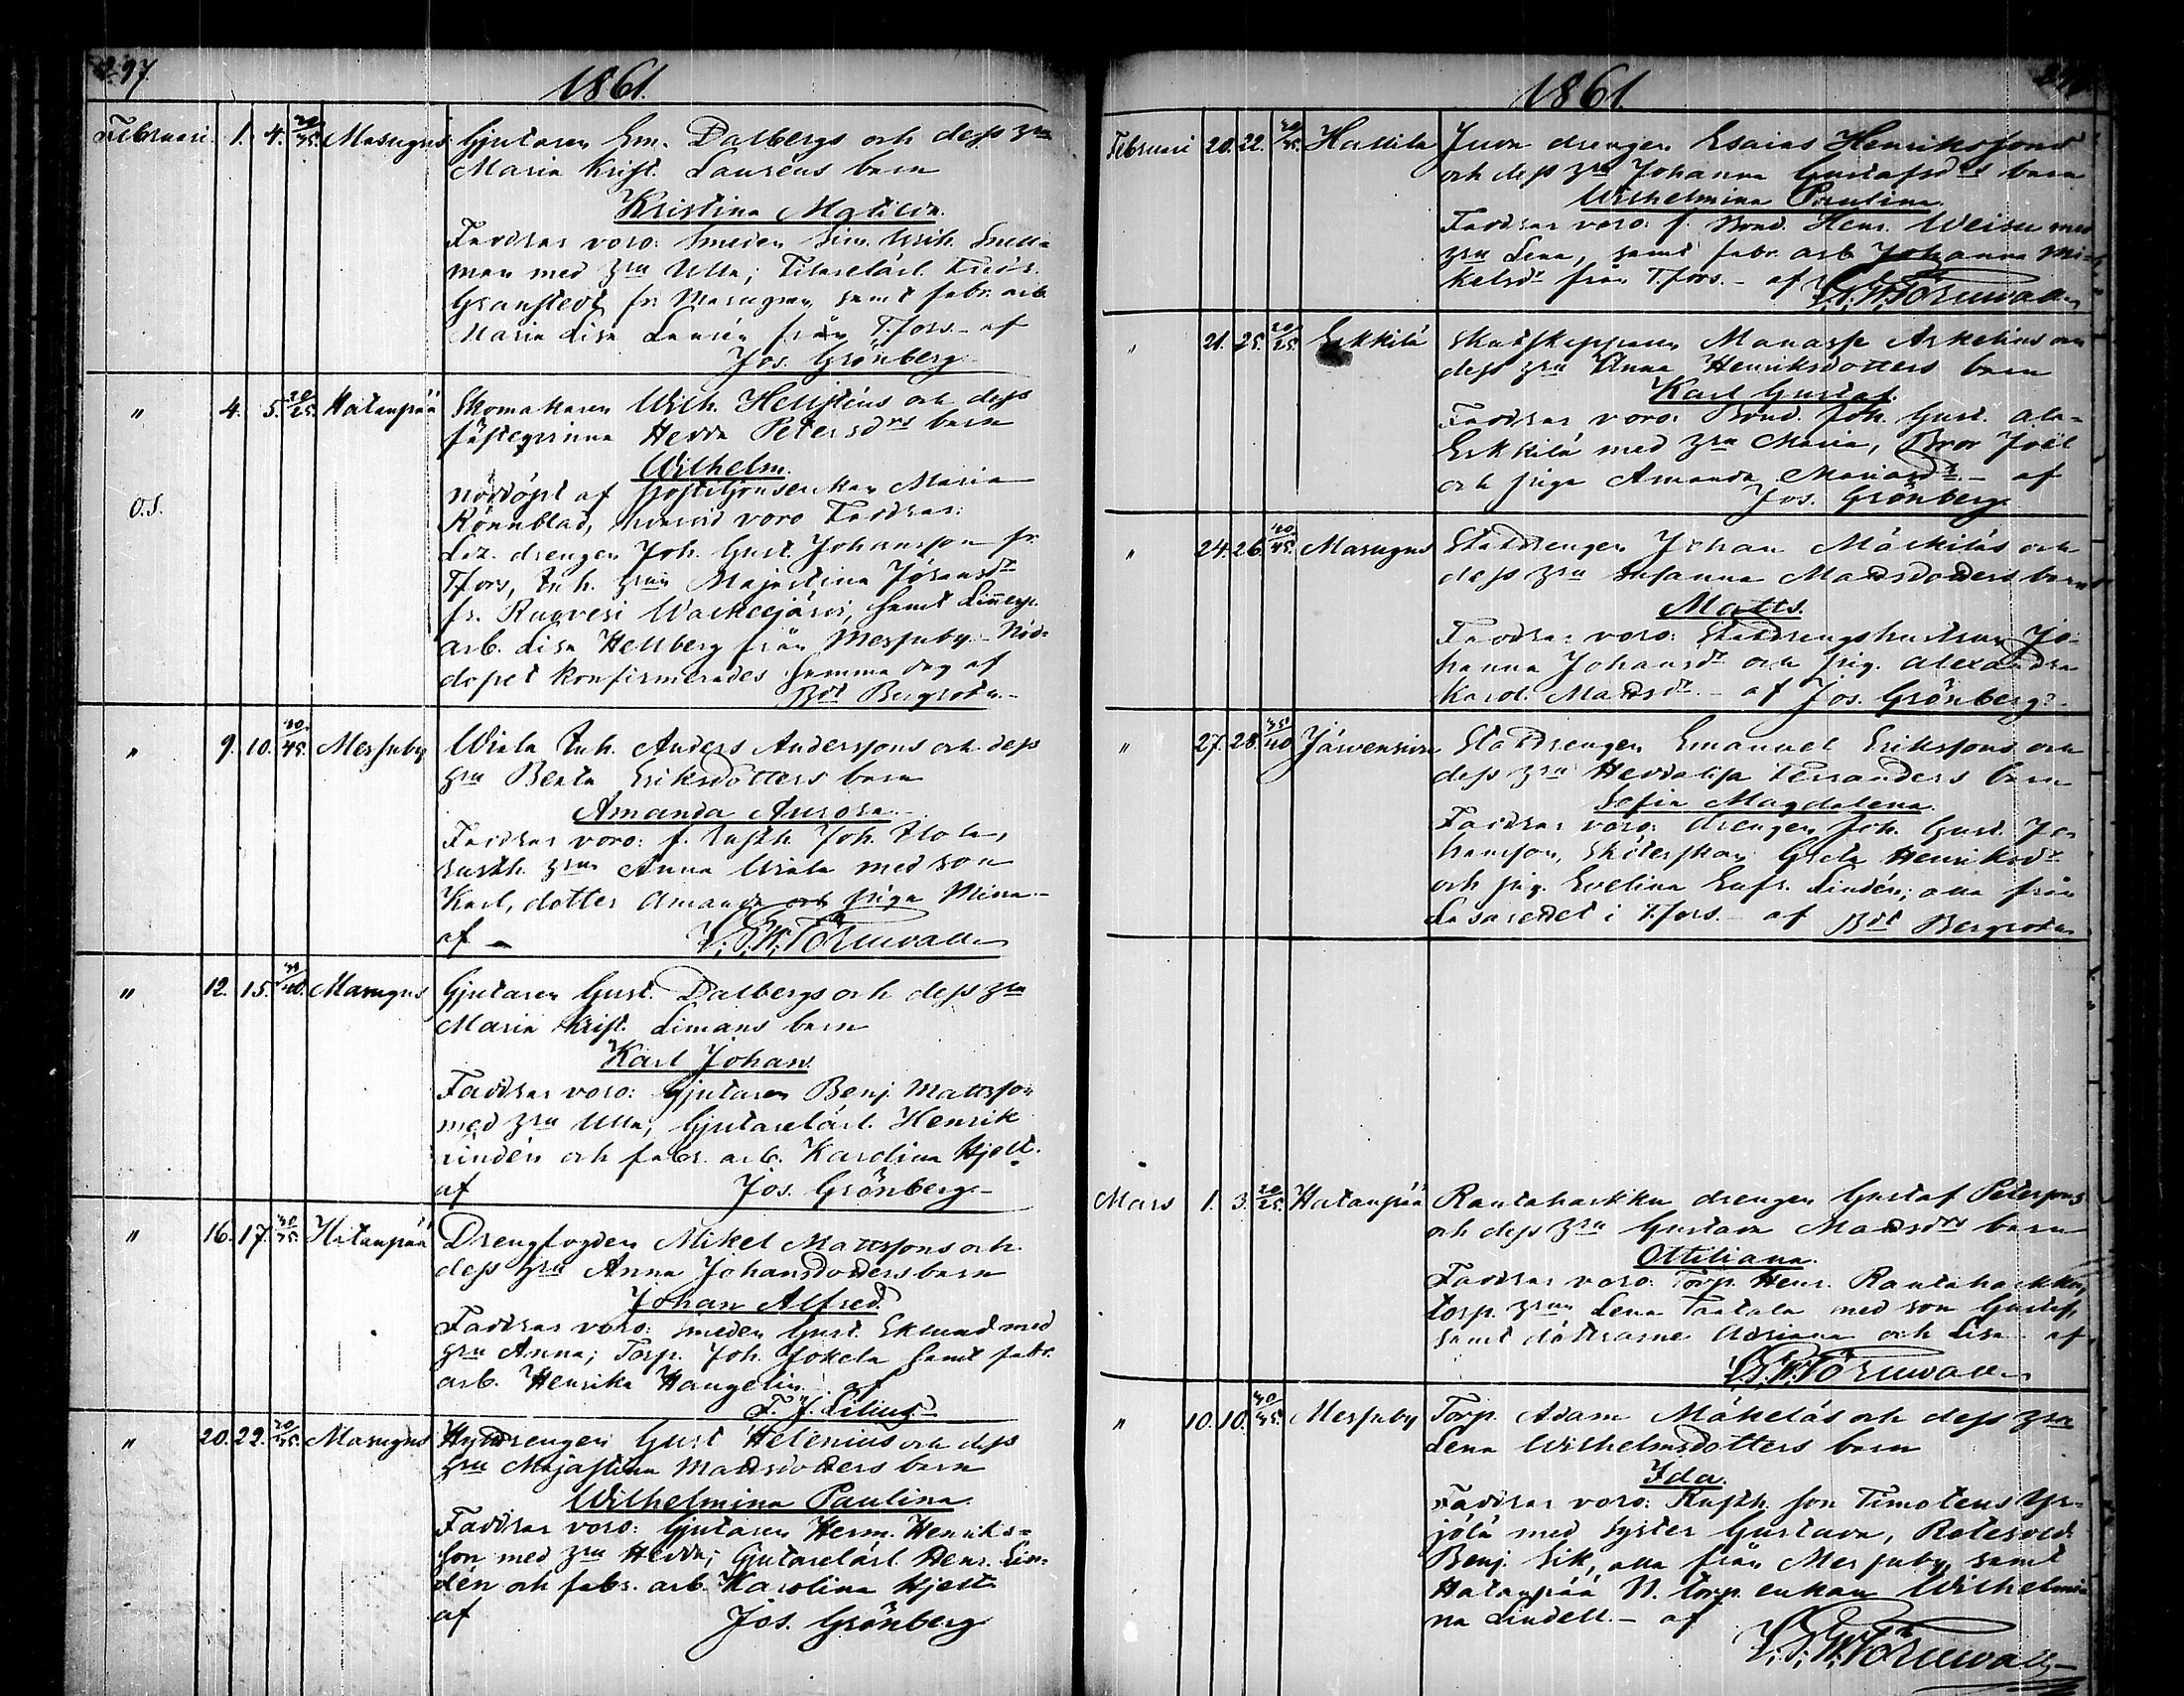 297.
1861.
Februari. 1. 4. 30/35. Masugns Gjutaren Em. Dalbergs och dess hru
Maria Krist. Lauréns barn
Kristina Matilda.
Faddrar voro: Smeden Sim. Wilh. Snell-
man med hru Ulla; Filarelärl. Fredr.
Granstedt fr. Masugnen samt fabr. arb.
Maria Lisa Laurén från T.fors. - af
Jos. Grönberg
" 4. 5. 20/25. Hatanpää Skomakaren Wilh. Hellsténs och dess
fästeqvinna Hedda Petersdrs barn
Wilhelm.
O.S. nöddöpt af Postiljonsenkan Maria
Rönnblad, hvarvid voro Faddrar:
Liz. drengen Joh. Gust. Johansson fr.
T.fors, Inh. hrun Majastina Göransdr
fr. Ruovesi Wäärinjärvi, samt Linnesp.
arb. Lisa Hellberg från Messuby. Nöd-
dopet konfirmerades samma dag af
Bdt Bergroth. -
" 9. 10. 40/45. Messuby Wiala Inh. Anders Anderssons och dess
hru Beata Eriksdotters barn
Amanda Aurora.
Faddrar voro: f. rusth. Joh.
rusth. hrun Anna Wiala med son
Karl, dotter Amanda och piga Mina -
af - V. G. W. Törnwall
" 12. 15. 35/40. Masugns Gjutaren Gust. Dalbergs och dess hru
Maria Krist. Limans barn
Karl Johan.
Faddrar voro: Gjutaren Benj. Mattsson
med hru Ulla, Gjutarelärl. Henrik
Lindén och fabr. arb. Karolina Hjelt.
af Jos. Grönberg. -
" 16. 17. 30/35. Hatanpää Drengfogden Mikel Mattssons och
dess hru Anna Johansdotters barn
Johan Alfred.
Faddrar voro: smeden Gust. Eklund med
hru Anna; Torp. Joh. Jokela samt fabr.
arb. Henrika Hangelin. af
F. J. Lilius.
" 20. 22. 30/35. Masugns Hyttdrengen Gust Helenius och dess
hru Majastina Mattsdotters barn
Wilhelmina Paulina.
Faddrar voro: Gjutaren Herm. Henriks-
son med hru Hedda; Gjutarelärl. Henr. Lin-
dén och fabr. arb. Karolina Hjelt
af Jos. Grönberg
1861.
Februari 20. 22. 30/35. Hallila Juva drengen Esaias Henrikssons
och dess hru Johanna Gustafsdrs barn
Wilhelmina Paulina.
Faddrar voro: f. Bond. Henr. Weisu med
hru Lena, samt fabr. arb Johanna Mi-
kelsdr från T.fors. - af V. G. W. Törnwall
" 21. 25. 20/25. Erkkilä Skutskepparen Manasse Arkelins och
dess hru Anna Henriksdotters barn
Karl Gustaf.
Faddrar voro: Bond. Joh. Gust. Ala-
Erkkilä med hru Maria, Bror Joël
och piga Amanda Mariasdr. - af
Jos. Grönberg.
" 24. 26. 40/45. Masugns Statdrengen Johan Mäckiläs och
dess hru Susanna Mattsdotters barn
Matts.
Faddrar voro: Statdrengshustrun Jo-
hanna Johansdr och pig. Alexandra
Karol. Mattsdr. - af Jos. Grönberg.
" 27. 28. 35/40 Järvensivu Statdrengen Emanuel Erikssons och
dess hru Heddalisa Terranders barn
Sofia Magdalena.
Faddrar voro: drengen Joh. Gust. Jo-
hansson, Sköterskan Greta Henriksdr
och pig. Evelina Eufr. Lindén; alla från
Lasarettet i T.fors. - af Bdt Bergroth
Mars 1. 3. 20/25. Hatanpää Rantaharkku drengen Gustaf Peterssons
och dess hru Gustava Mattsdrs barn
Ottiliana.
Faddrar voro: Torp. Henr. Rantaharkku,
torp. hrun Lena Taatala med son Gustaf,
samt döttrarne Adriana och Lisa af
V. G. W. Törnwall
" 10. 10. 30/35. Messuby Torp. Adam Mäkeläs och dess hru
Lena Wilhelmsdotters barn
Ida.
Faddrar voro: Rusth. son Timoteus Yr-
jölä med syster Gustava, Rotesold.
Benj. Sik, alla från Messuby samt
Hatanpää N. torp. enkan Wilhelmi-
na Lindell. - af
V. G. W. Törnwall